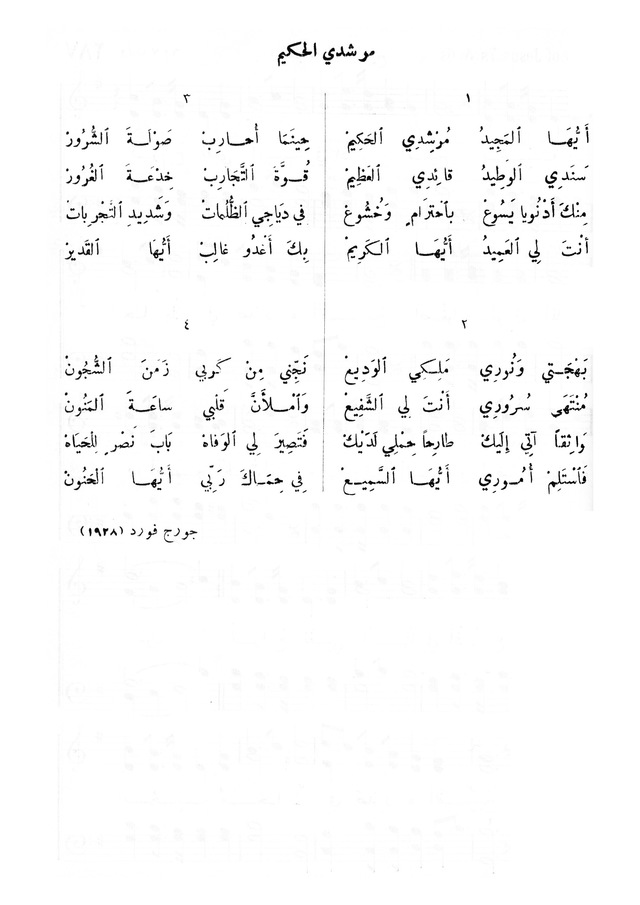 مرشدي الحكيم
١
أَيُّهَا ٱلمَجِيدُ مُرْشِدِي ٱلحَكِيمْ
سَنَدِي ٱلوَطِيدُ قائِدِي ٱلعَظِيمْ
مِنْكَ أَدْنُو يا يَسُوعْ بٱحْتِرامٍ وَخُشُوعْ
أَنْتَ لِي ٱلعَمِيدُ أَيُّهَا ٱلكَرِيمْ
٢
بَهْجَتِي وَنُورِي مَلِكِي ٱلوَدِيعْ
مُنْتَهَى سُرُورِي أَنْتَ لِي ٱلشَّفِيعْ
وَاثِقاً آتِي إِلَيْكَ طارِحاً حِمْلِي لَدَيْكَ
فَٱسْتَلِمْ أُمُورِي أَيُّهَا ٱلسَّمِيعْ
٣
حِينَمَا أُحارِبْ صَوْلَةَ ٱلشُّرُورْ
قُوَّةَ ٱلتَّجَارِبْ خِدْعَةَ ٱلغُرُورْ
في دَيَاجِي ٱلظُّلُمَاتْ وَشَدِيدِ ٱلتَّجْرِبَاتْ
بِكَ أَغْدُو غالِبْ أَيُّهَا ٱلقَدِيرْ
٤
نَجِّنِي مِنْ كَرْبِي زَمَنَ ٱلشُّجُونْ
وَٱمْلأَنَّ قَلْبِي ساعَةَ ٱلمَنُونْ
فَتَصِيرَ لِي ٱلوَفاهْ بَابَ نَصْرٍ لِلْحَيَاهْ
فِي حِمَاكَ رَبِّي أَيُّهَا ٱلحَنُونْ
جورج فورد (١٩٢٨)